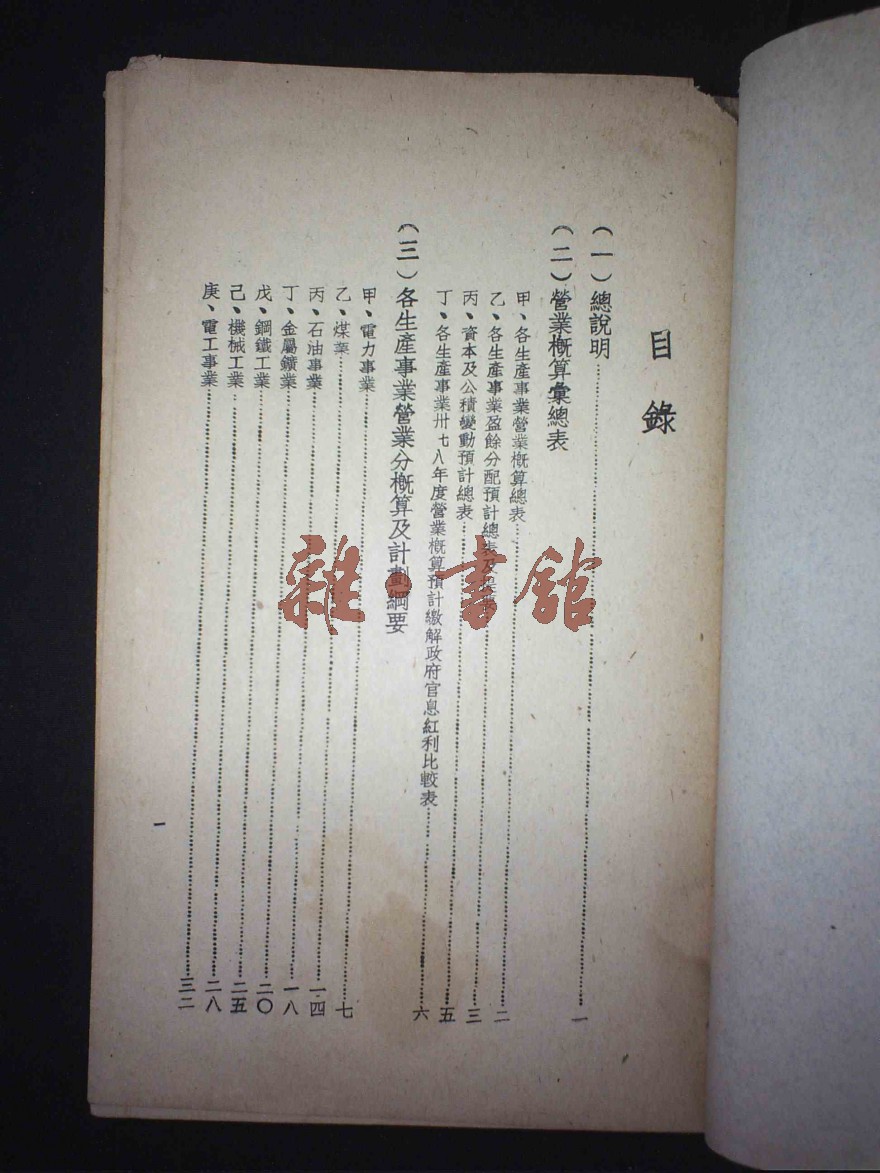 目錄
(一)總說明……一
(二)營業概算彙總表
甲、各生產事業營業概算總表……二
乙、各生產事業盈餘分配預計總表及……三
丙、資本及公積變動預計總表……五
丁、各生產事業卅七八年度營業概算預計繳解政府官息紅利比較表……六
(三)各生產事業營業分概算及計劃綱要
甲、電力事業……七
乙、煤業……一四
丙、石油事業……一八
丁、金屬鑛業……二〇
戊、鋼鐵工業……二五
己、機械工業……二八
庚、電工事業……三二
一
雜·書館